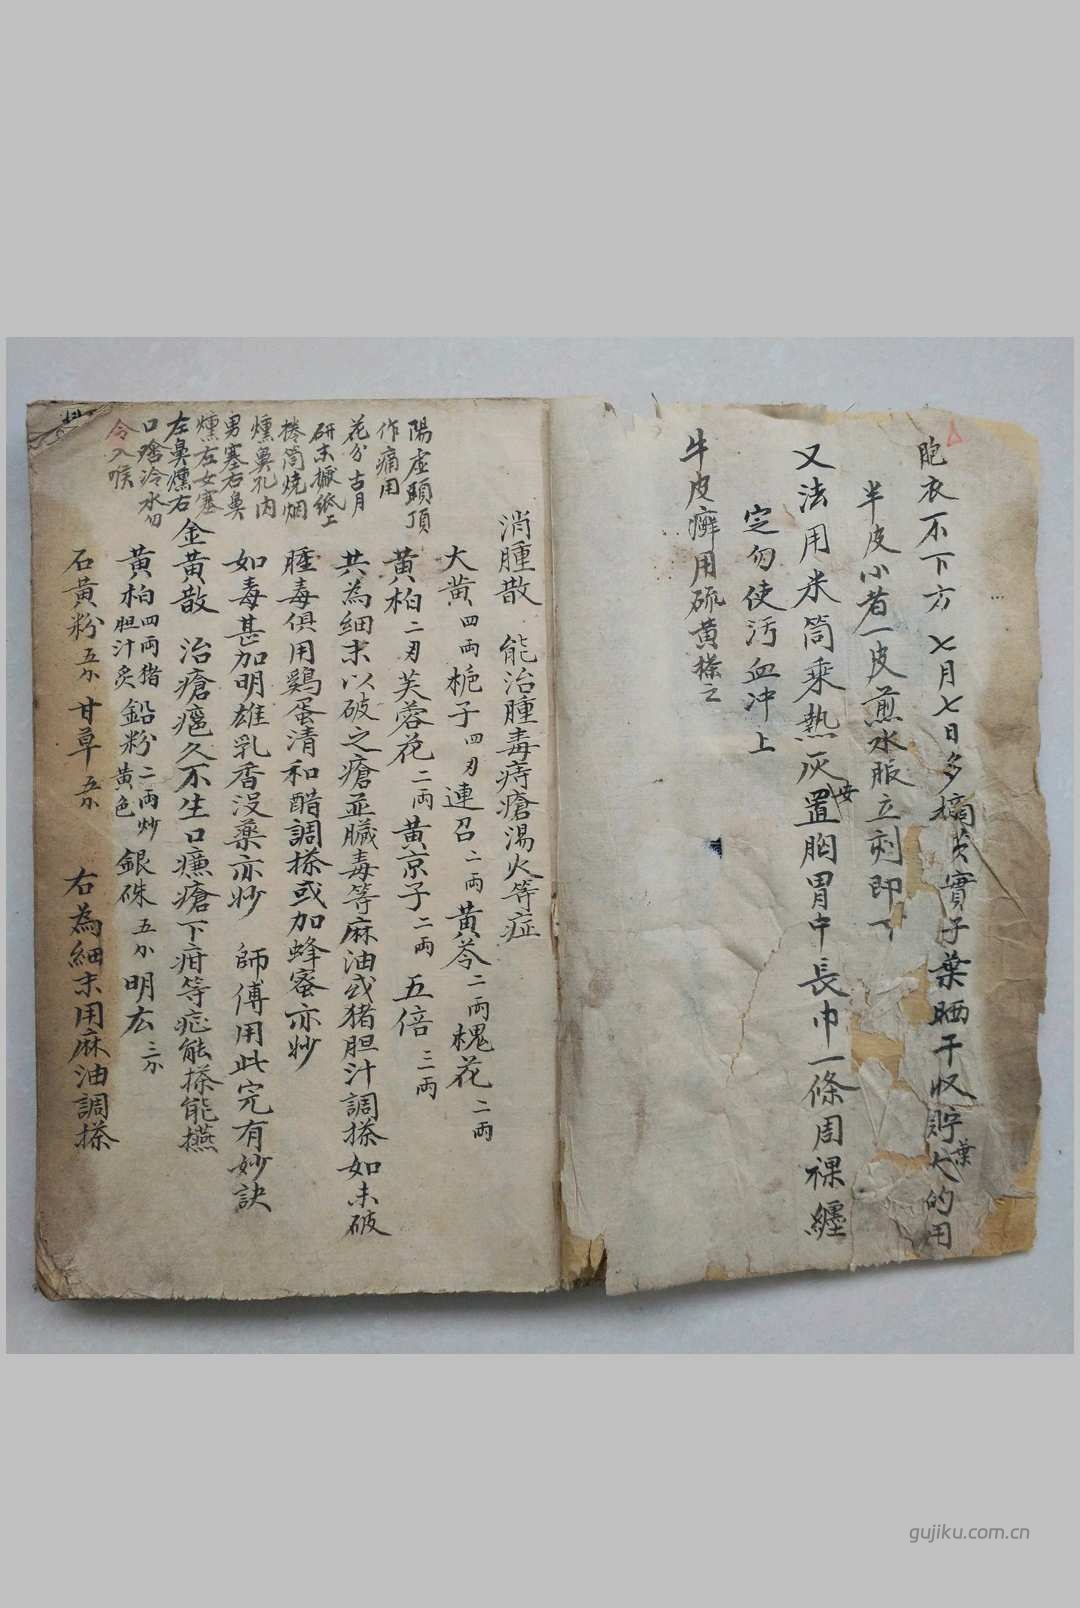 胞衣不下方 七月七日多摘芡實子葉晒干收貯大葉的用
半皮小者一皮煎水服立刻即下
又法用米筒乘熱灰安置胸胃中長巾一條周裸纏
定勿使污血冲上
牛皮癬用硫黄搽之
消腫散 能治腫毒痔瘡湯火等症
大黄四兩梔子四刄連召二兩黄芩二兩槐花二兩
黄柏二刄芙蓉花二兩黄京子二兩五倍三兩
共為細末以破之瘡並臟毒等麻油或猪胆汁調搽如未破
腫毒俱用鷄蛋清和醋調搽或加蜂蜜亦妙
如毒甚加明雄乳香没藥亦妙 師傅用此完有妙訣
金黄散 治瘡癌久不生口臁瘡下疳等症能搽能
黄柏四兩猪胆汁炙鉛粉二兩炒黄色銀硃五分明広三分
石黄粉五分甘草五分 右為細末用麻油調搽
陽虚頭頂
作痛用
花分古月
研末摋紙上
捲筒烧烟
燻鼻孔内
男塞右鼻
燻左女塞
左鼻燻右
口啥冷水勿
令入喉
gujiku.com.cn